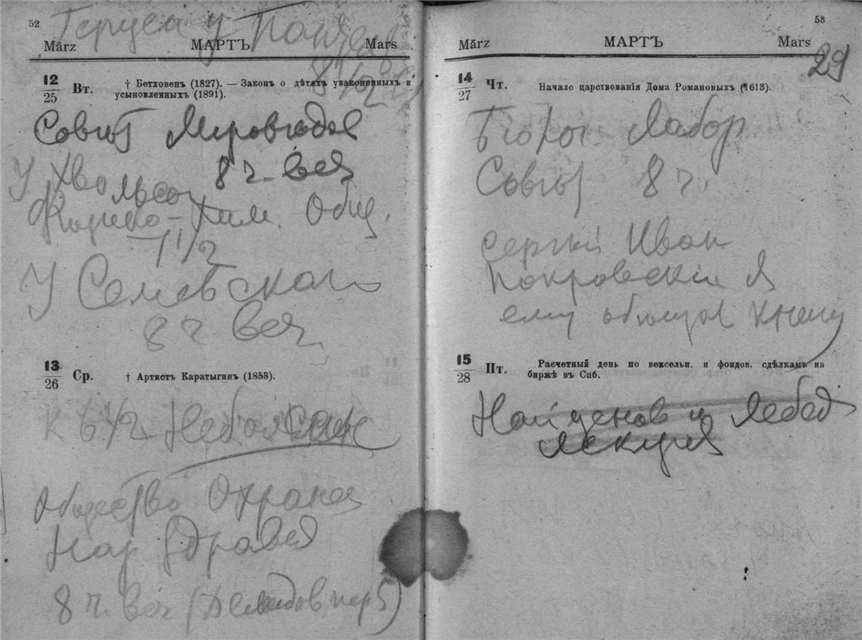 52
März МАРТЪ Mars
12/25 Вт. † Бетховенъ (1827). — Законъ о дѣтяхъ узаконенныхъ и
усыновленныхъ (1891).
8 ч. веч
У Хвольсон
Физико-Хим. Общ.
7 1/2
У Семевскаго
8 ч веч
13/26 Ср. † Артистъ Каратыгинъ (1853).
к 6 1/2
Общество Охранен
Нар Здравия
8 ч. веч (Демидов пер 5)
53
März МАРТЪ Mars
29
14/27 Чт. Начало царствованія Дома Романовыхъ (1613).
Лабор
Совет 8 ч.
Сергей Иван
Покровский я
ему обещал книгу
15/28 Пт. Расчетный день по вексельн. и фондов. сдѣлкамъ на
биржѣ въ Спб.
Найденов и Лебед
лекция